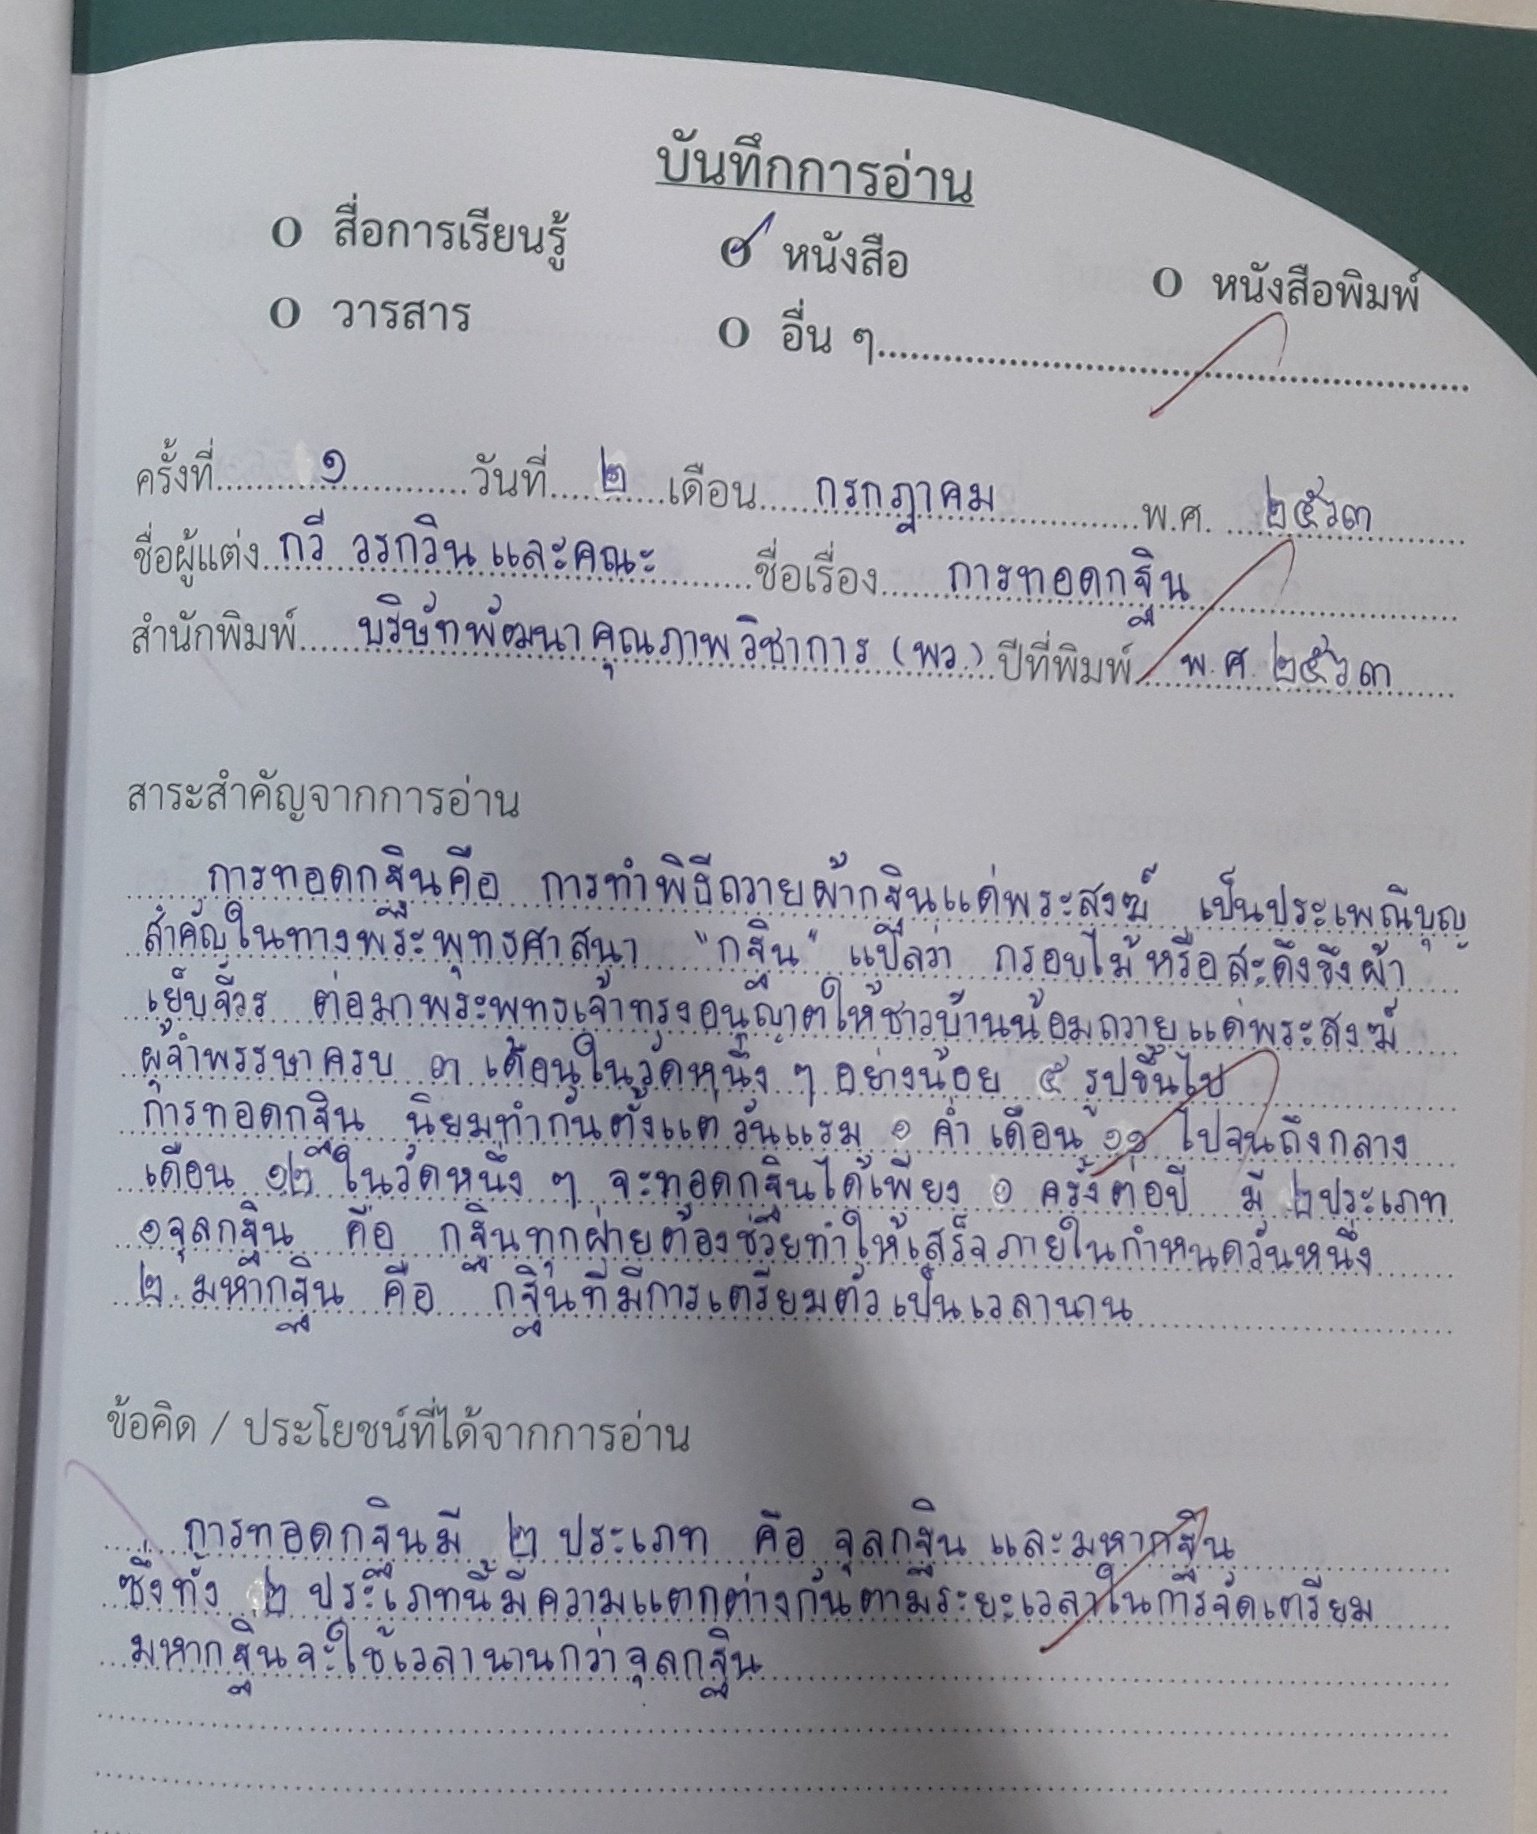 บันทึกการอ่าน
O สื่อการเรียนรู้ O หนังสือ O หนังสือพิมพ์
O วารสาร O อื่น ๆ
ครั้งที่ ๑ วันที่ ๒ เดือน กรกฎาคม พ.ศ. ๒๕๖๓
ชื่อผู้แต่ง กวี วรกวิน และคณะ ชื่อเรื่อง การทอดกฐิน
สำนักพิมพ์ บริษัทพัฒนาคุณภาพวิชาการ (พว.) ปีที่พิมพ์ พ.ศ. ๒๕๖๓
สาระสำคัญจากการอ่าน
การทอดกฐินคือ การทำพิธีถวายผ้ากฐินแด่พระสงฆ์ เป็นประเพณีบุญ
สำคัญในทางพระพุทธศาสนา "กฐิน" แปลว่า กรอบไม้หรือสะดึงขึงผ้า
เย็บจีวร ต่อมาพระพุทธเจ้าทรงอนุญาตให้ชาวบ้านน้อมถวายแด่พระสงฆ์
ผู้จำพรรษาครบ ๓ เดือนในวัดหนึ่ง ๆ อย่างน้อย ๕ รูปขึ้นไป
การทอดกฐิน นิยมทำกันตั้งแต่วันแรม ๑ ค่ำ เดือน ๑๑ ไปจนถึงกลาง
เดือน ๑๒ ในวัดหนึ่ง ๆ จะทอดกฐินได้เพียง ๑ ครั้งต่อปี มี ๒ ประเภท
๑จุลกฐิน คือ กฐินทุกฝ่ายต้องช่วยทำให้เสร็จภายในกำหนดวันหนึ่ง
๒. มหากฐิน คือ กฐินที่มีการเตรียมตัวเป็นเวลานาน
ข้อคิด / ประโยชน์ที่ได้จากการอ่าน
การทอดกฐินมี ๒ ประเภท คือ จุลกฐิน และมหากฐิน
ซึ่งทั้ง ๒ ประเภทนี้มีความแตกต่างกันตามระยะเวลาในการจัดเตรียม
มหากฐินจะใช้เวลานานกว่าจุลกฐิน